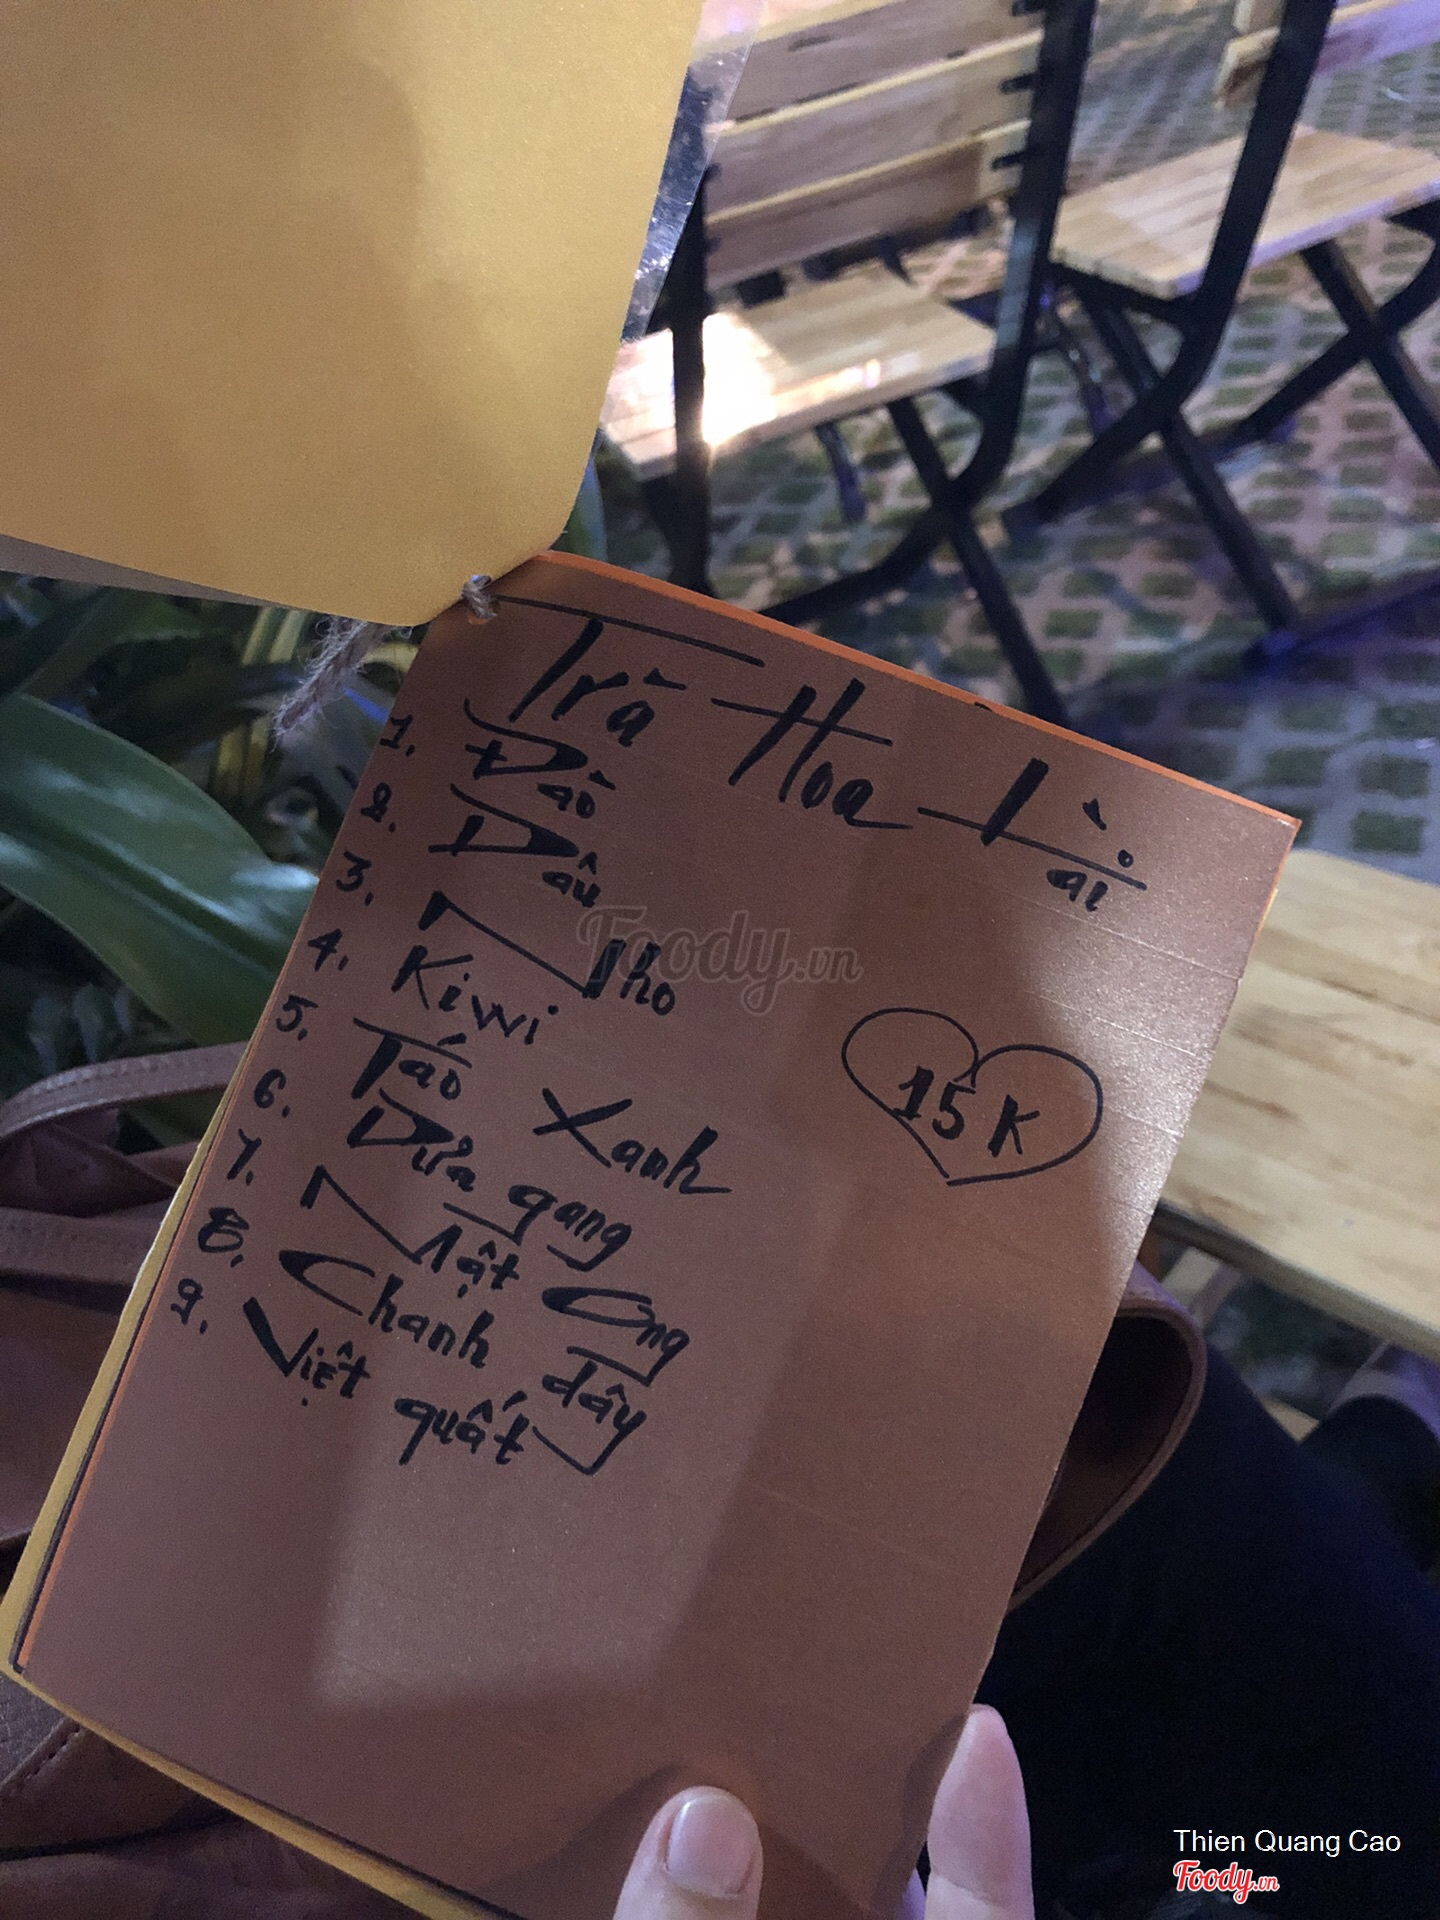 Trà Hoa Lài
1. Đào
2. Dâu
3. Nho
4. Kiwi
5. Táo Xanh
6. Dưa gang
7. Mật Ong
8. Chanh dây
9. Việt quất
15K
Foody.vn
Thien Quang Cao
Foody.vn